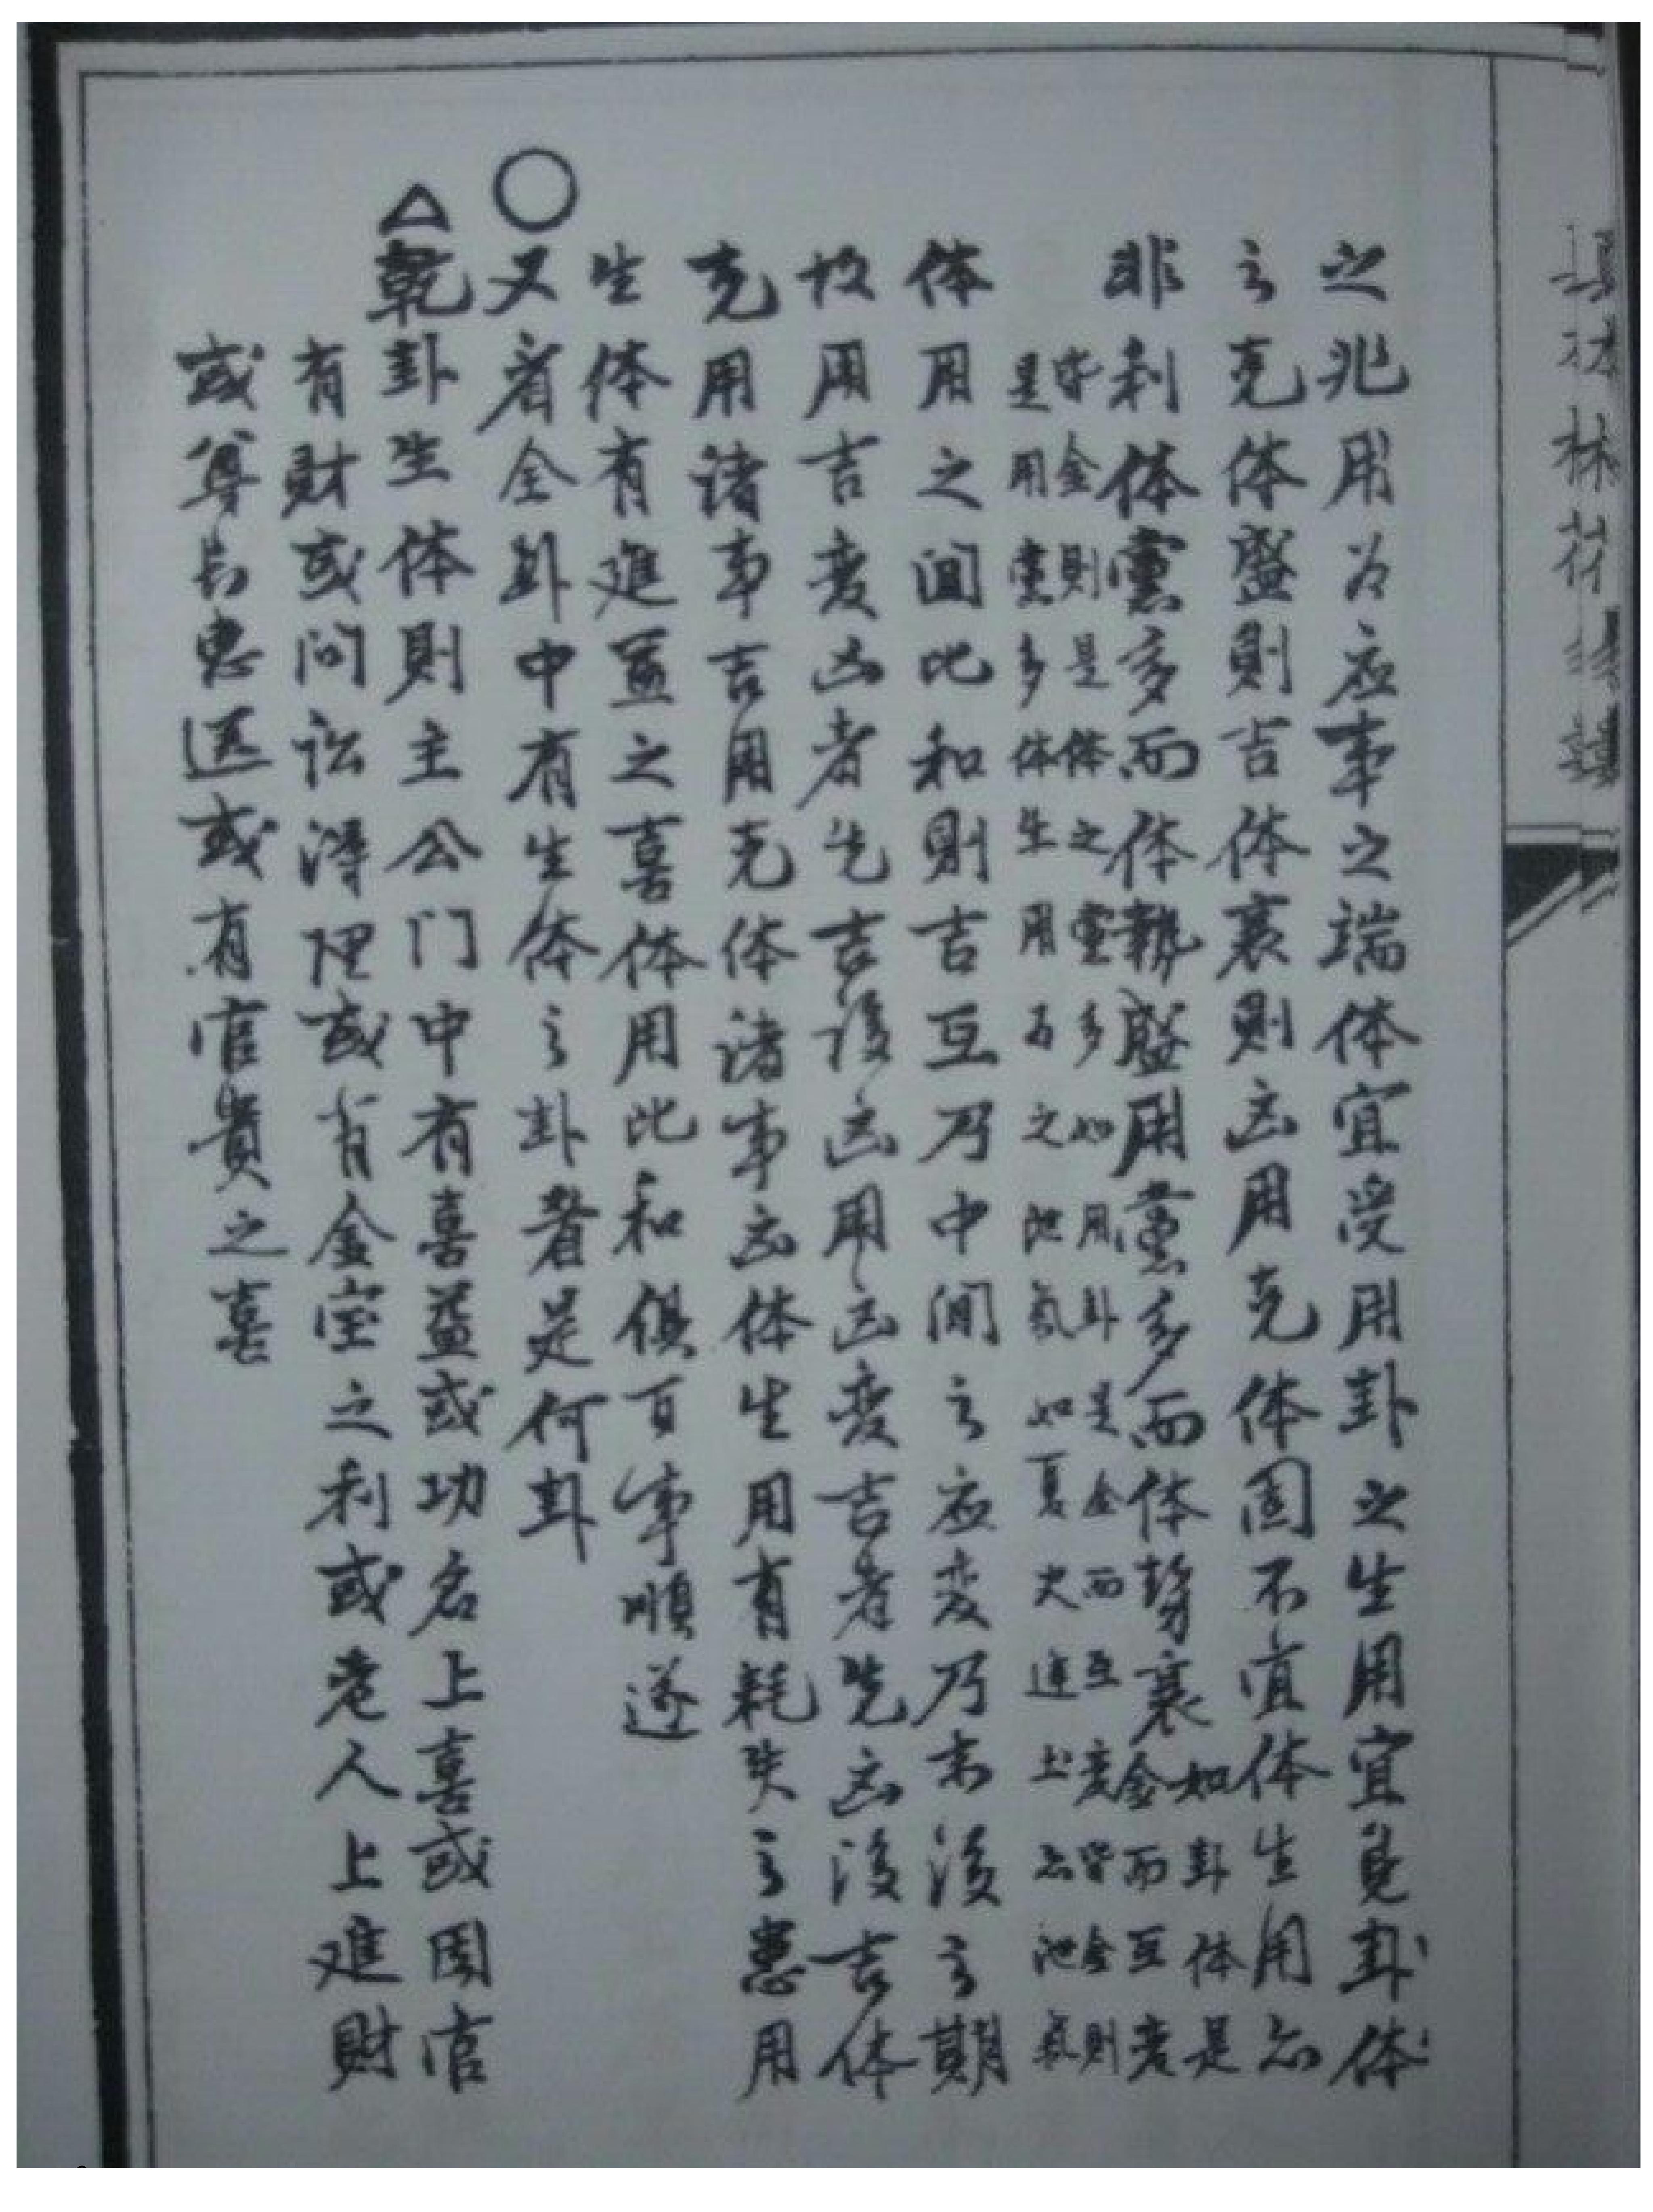 之兆用为应事之端体宜受用卦之生用宜見卦体
之克体盛則吉体衰則凶用克体固不宜体生用亦
非利体党多而体势盛用党多而体势衰如卦体是
金而互变
皆金則是体之党多如用卦是金而互变皆金則
是用党多体生用为之泄气如夏火逢土亦泄气
体用之间比和則吉互乃中间之应变乃末後之期
故用吉变凶者先吉後凶用凶变吉者先凶後吉体
克用诸事吉用克体诸事凶体生用有耗失之患用
生体有進益之喜体用比和俱百事順遂
○又看全卦中有生体之卦者是何卦
△乾卦生体則主公门中有喜益或功名上喜或因官
有財或问讼得理或有金宝之利或老人上進財
或尊长惠送或有官貴之喜